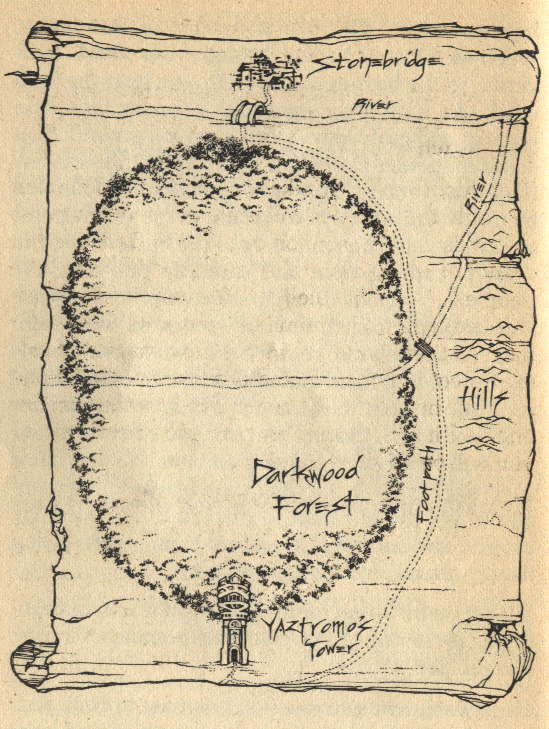 Stonebridge
River
River
Hills
Darkwood
Forest
Footpath
Yaztromo's
Tower